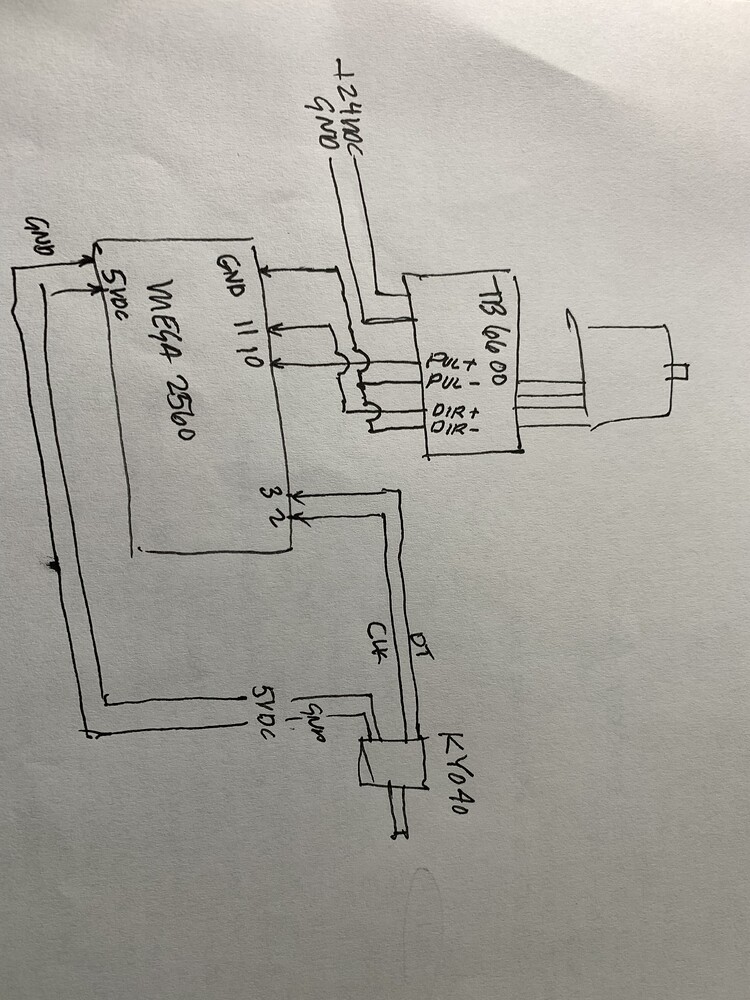 TB 6600
PUL+
PUL-
DIR+
DIR-
KY040
DT
CLK
+24VDC
GND
GND
5VDC
GND 11 10 3 2
MEGA 2560
5VDC
GND